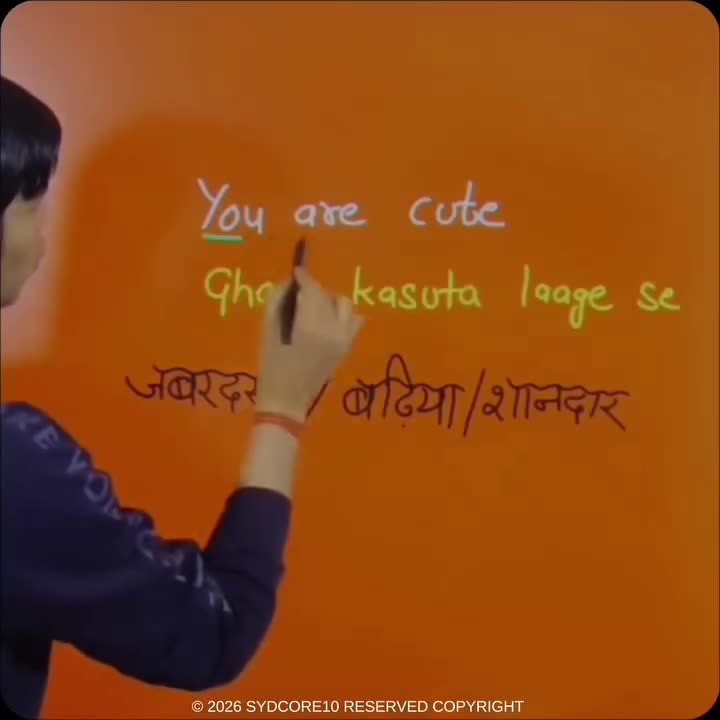 You are cute
kasuta laage se
बढ़िया/शानदार
© 2026 SYDCORE10 RESERVED COPYRIGHT